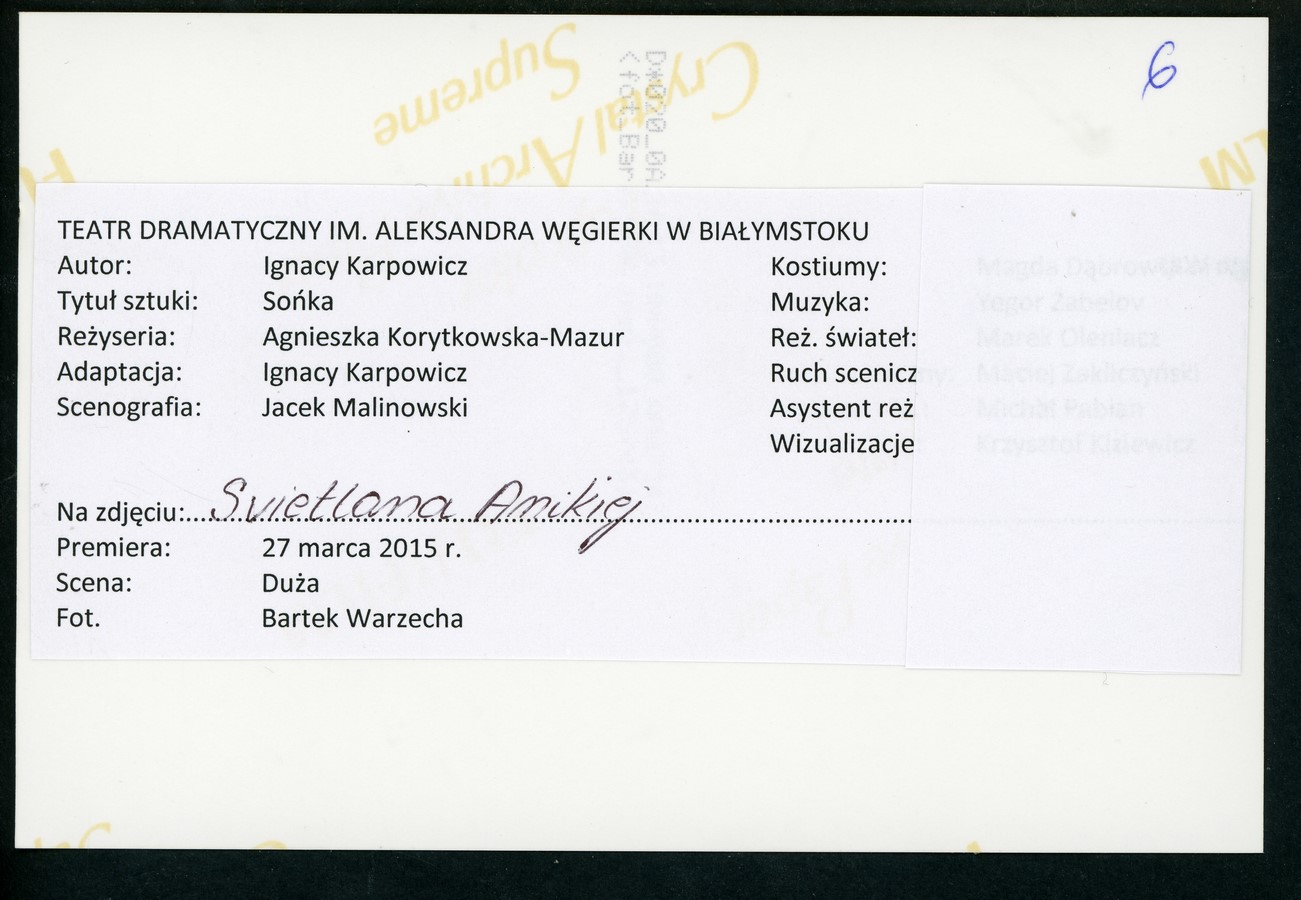 6
Crystal Archive
Supreme
TEATR DRAMATYCZNY IM. ALEKSANDRA WĘGIERKI W BIAŁYMSTOKU
Autor: Ignacy Karpowicz Kostiumy: Magda Dąbrowska
Tytuł sztuki: Sońka Muzyka: Yegor Zabelov
Reżyseria: Agnieszka Korytkowska-Mazur Reż. świateł: Marek Oleniacz
Adaptacja: Ignacy Karpowicz Ruch scenicz ny: Maciej Zakliczyński
Scenografia: Jacek Malinowski Asystent reż Michał Pabian
Wizualizacje Krzysztof Kiziewicz
Na zdjęciu: Svietlana Anikiej
Premiera: 27 marca 2015 r.
Scena: Duża
Fot. Bartek Warzecha